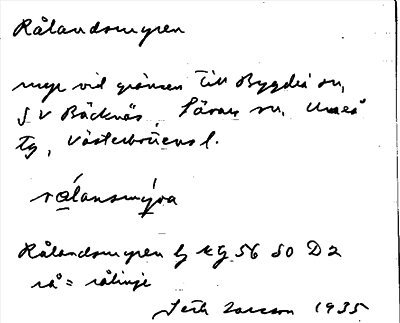 Rålandsmyren
myr vid gränsen till Bygdeå sn,
SV Bäcknäs, Sävars sn, Umeå
tg, Västerbottens l.
rålansmýra
Rålandsmyren lj ktg 56 SO D2
rå = rålinje
Seth Larsson 1935